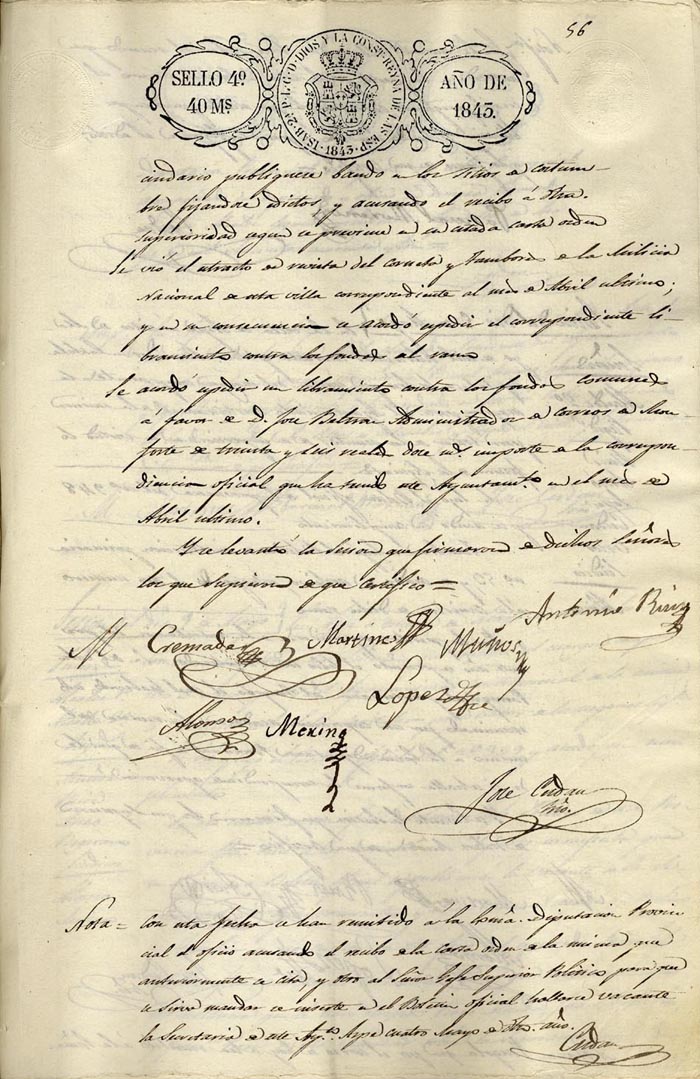 56
SELLO 4º
40 Ms
ISAB. 2ª P. L. G. D. DIOS Y LA CONST. REYNA DE LAS ESP.
1843.
AÑO DE
1843.
cindario publiquece bando en los sitios de costum-
bre fijandose edictos, y acusando el recibo á dha.
superioridad segun se previene en su citada carta orden
Se vió el extracto de revista del corneta y tambores de la Milicia
Nacional de esta villa correspondiente al mes de Abril ultimo;
y en su consecuencia se acordó espedir el correspondiente li-
bramiento contra los fondos del ramo
Se acordó espedir un libramiento contra los fondos comunes
á favor de D. Jose Beltran Administrador de correos de Mon-
forte de treinta y seis reales doce ms. importe de la correspon-
dencia oficial que ha tenido este Ayuntamto. en el mes de
Abril ultimo.
Y se levantó la sesion que firmaron de dichos Señores
los que supieron de que certifico =
Antonio Rius
M Cremades Martines Muños
Lopez
Alonso Merino
Jose Cerdan
Srio.
Nota = Con esta fecha se han remitido á la Exma. Diputacion Provin
cial el oficio acusando el recibo de la carta orden de la misma que
anteriormente se cita, y otro al Señor Gefe Superior Politico para que
se sirva mandar se inserte en el Boletin oficial hallarse vacante
la Secretaria de este Ayto. Aspe cuatro Mayo de dho. año.
Cerdan